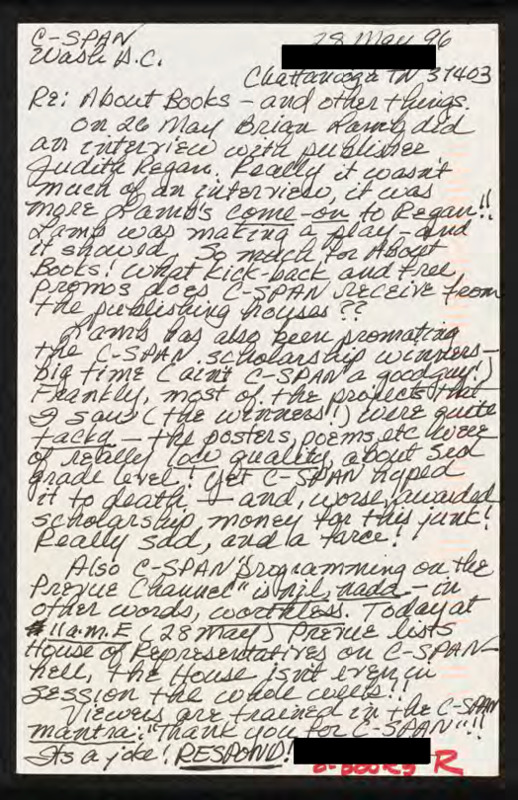 C-SPAN
28 May 96
Wash D.C.
Chattanooga TN 37403
Re: About Books – and other things.
On 26 May Brian Lamb did
an interview with publisher
Judith Regan. Really it wasn't
much of an interview, it was
more Lamb's come-on to Regan!!
Lamb was making a play – and
it showed. So much for About
Books! What kick-back and free
promos does C-SPAN receive from
the publishing houses??
Lamb has also been promoting
the C-SPAN scholarship winners –
big time (ain't C-SPAN a good guy!)
Frankly, most of the projects that
I saw (the winners!) were quite
tacky – the posters, poems, etc were
of really low quality, about 3rd
grade level! Yet C-SPAN hyped
it to death – and, worse, awarded
scholarship money for this junk!
Really sad, and a farce!
Also C-SPAN "programming on the
Prevue Channel" is nil, nada – in
other words, worthless. Today at
11a.m.E (28 May) Prevue lists
House of Representatives on C-SPAN –
hell, the House isn't even in
session the whole week!!
Viewers are trained in the C-SPAN
mantra: "Thank you for C-SPAN"!!
Its a joke! RESPOND!
R